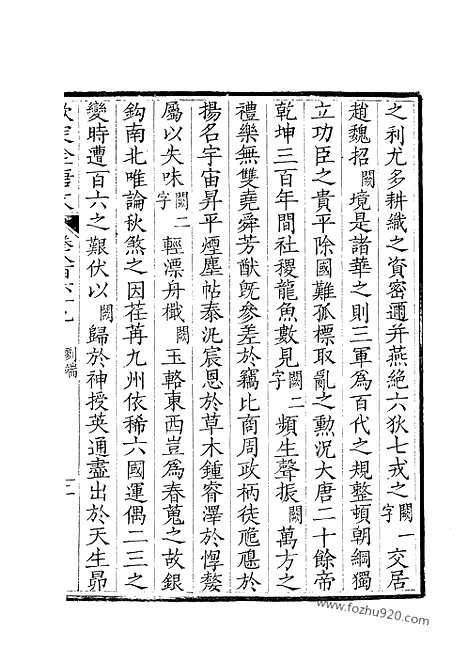 之利尤多耕織之資密邇并燕絕六狄七戎之闕一字交居
趙魏招闕境是諸華之則三軍為百代之規整頓朝綱獨
立功臣之貴平除國難孤標取亂之勳況大唐二十餘帝
乾坤三百年間社稷龍魚數見闕二字頻生聲振闕萬方之
禮樂無雙堯舜芳猷既參差於竊比商周政柄徒於
揚名宇宙昇平煙塵帖泰沘宸恩於草木鍾睿澤於惸嫠
屬以失味闕二字輕漂舟檝闕玉輅東西豈為春蒐之故銀
鈎南北唯論秋煞之因荏苒九州依稀六國運偶二三之
變時遭百六之艱伏以闕歸於神授英通盡出於天生昴
欽定全唐文 卷八百六十九 劉端 二
www.fozhu920.com